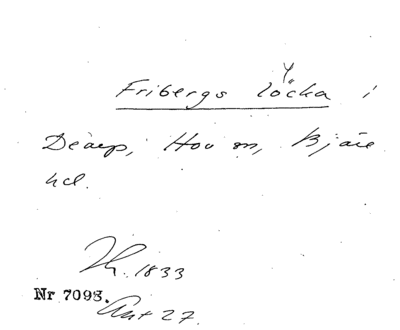 Fribergs löcka i
Dearp, Hov sn, Bjäre
hd.
Th. 1833
Nr 7093.
Ant 27.